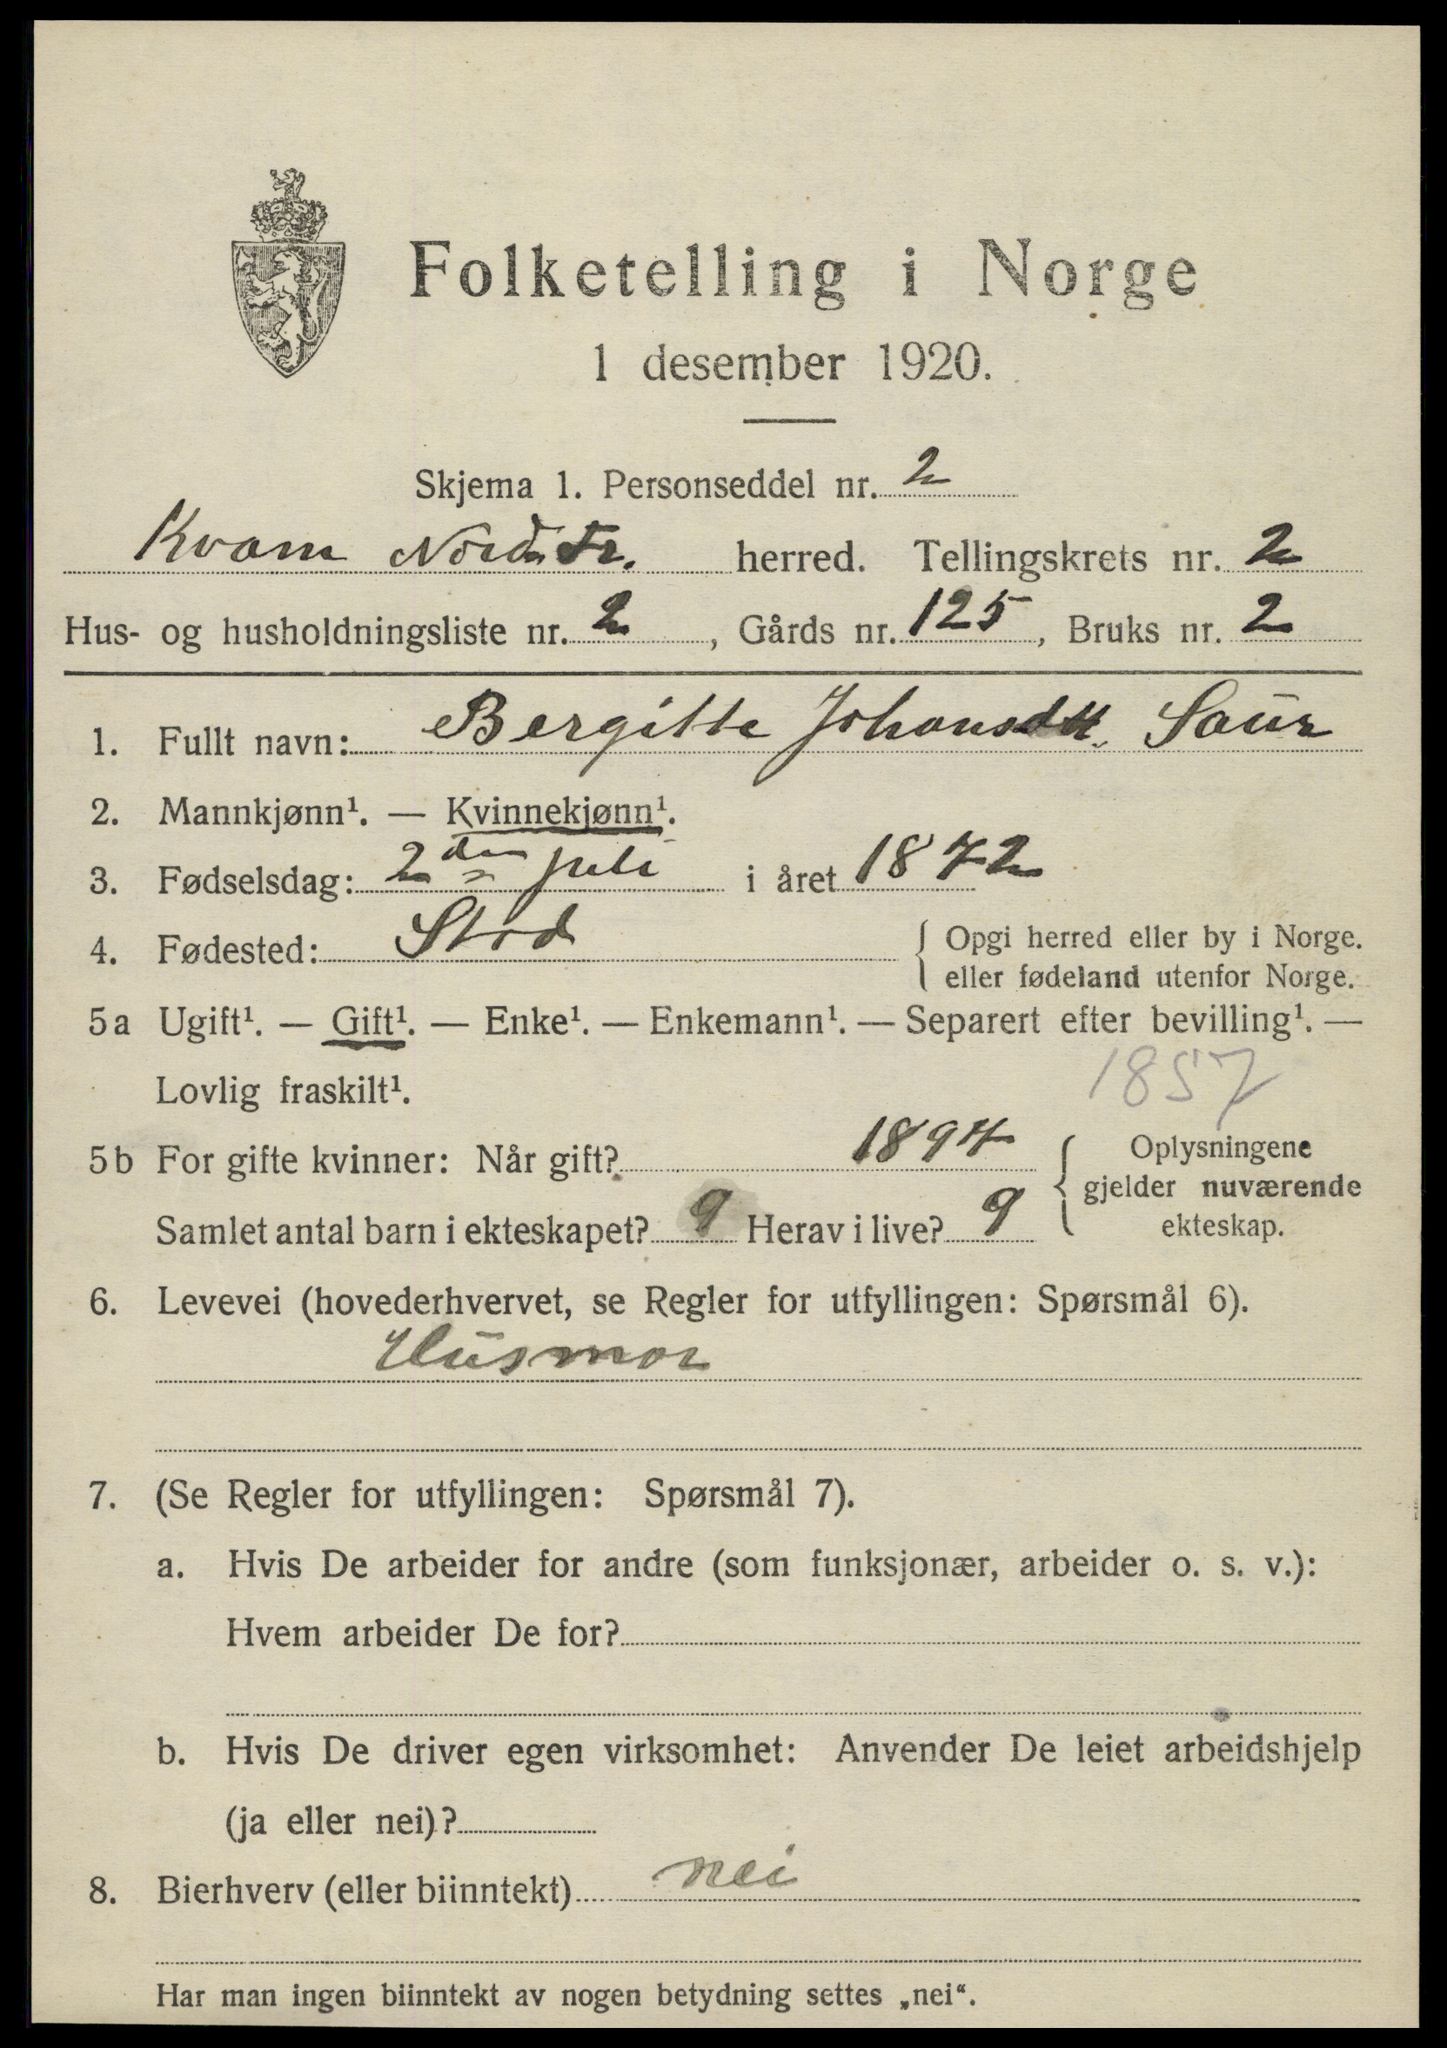 Folketelling i Norge
1 desember 1920.
Skjema 1. Personseddel nr. 2
Kvam Nord Tr. herred. Tellingskrets nr. 2
Hus- og husholdningsliste nr. 2, Gårds nr. 125, Bruks nr. 2
1. Fullt navn: Bergitte Johansdtt. Saur
2. Mannkjønn¹. — Kvinnekjønn¹.
3. Fødselsdag: 2den juli i året 1872
4. Fødested: Stod { Opgi herred eller by i Norge.
eller fødeland utenfor Norge.
5a Ugift¹. — Gift¹. — Enke¹. — Enkemann¹. — Separert efter bevilling¹. —
Lovlig fraskilt¹. 1857
5b For gifte kvinner: Når gift? 1894 { Oplysningene
gjelder nuværende
ekteskap.
Samlet antal barn i ekteskapet? 9 Herav i live? 9
6. Levevei (hovederhvervet, se Regler for utfyllingen: Spørsmål 6).
Husmor
7. (Se Regler for utfyllingen: Spørsmål 7).
a. Hvis De arbeider for andre (som funksjonær, arbeider o. s. v.):
Hvem arbeider De for?
b. Hvis De driver egen virksomhet: Anvender De leiet arbeidshjelp
(ja eller nei)?
8. Bierhverv (eller biinntekt) nei
Har man ingen biinntekt av nogen betydning settes „nei“.